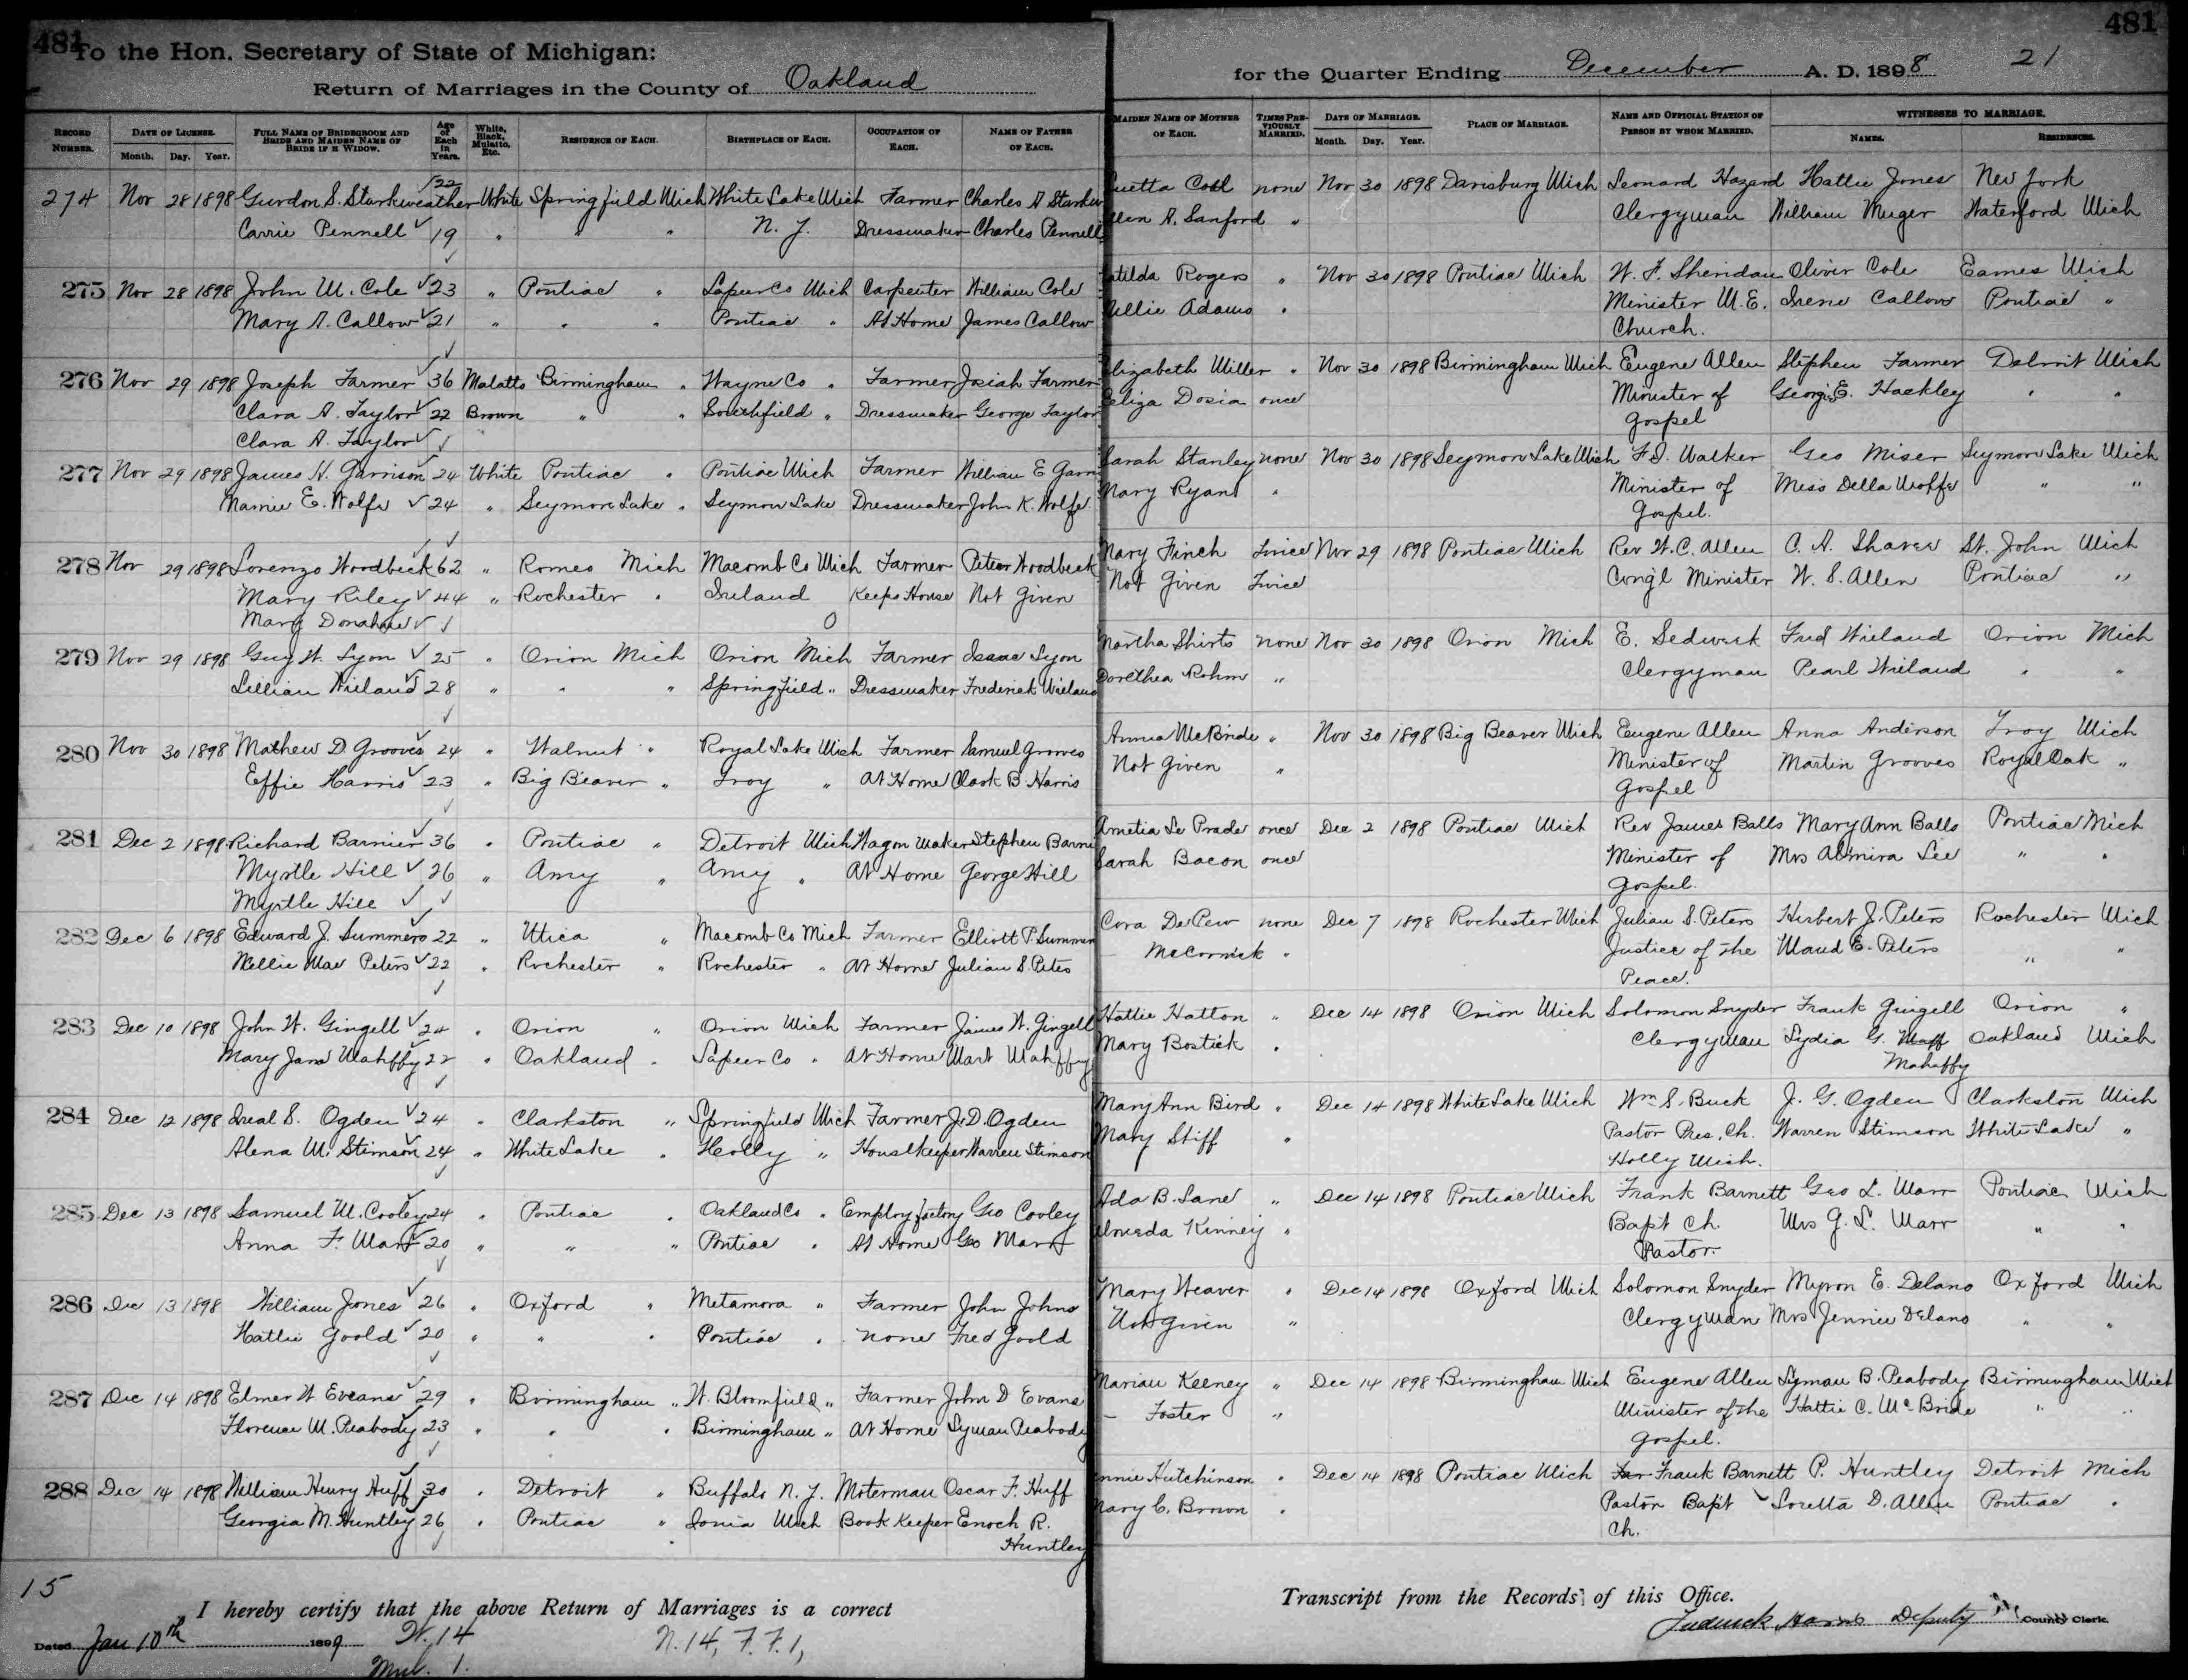 481
To the Hon. Secretary of State of Michigan:
Return of Marriages in the County of Oakland
for the Quarter Ending December A. D. 1898 21
481
RECORD NUMBER. DATE OF LICENSE. Month. Day. Year. FULL NAME OF BRIDEGROOM AND BRIDE AND MAIDEN NAME OF BRIDE IF A WIDOW. Age of Each in Years. White, Black, Mulatto, Etc. RESIDENCE OF EACH. BIRTHPLACE OF EACH. OCCUPATION OF EACH. NAME OF FATHER OF EACH. MAIDEN NAME OF MOTHER OF EACH. TIMES PREVIOUSLY MARRIED. DATE OF MARRIAGE. Month. Day. Year. PLACE OF MARRIAGE. NAME AND OFFICIAL STATION OF PERSON BY WHOM MARRIED. WITNESSES TO MARRIAGE. NAMES. RESIDENCES.
274 Nov 28 1898 Gurdon S. Starkweather 22 White Springfield Mich White Lake Mich Farmer Charles A none Nov 30 1898 Davisburg Mich Leonard Hazard Hattie Jones New York
Carrie Pennell 19 " " " N. Y. Dressmaker Charles Pennell A. Sanford " Clergyman William Muger Waterford Mich
275 Nov 28 1898 John M. Cole 23 " Pontiac " Lapeer Co Mich Carpenter William Cole Rogers " Nov 30 1898 Pontiac Mich W. F. Sheridan Oliver Cole Eames Mich
Mary A. Callow 21 " " " Pontiac " At Home James Callow Adams " Minister M.E. Irene Callow Pontiac "
Church.
276 Nov 29 1898 Joseph Farmer 36 Malatto Birmingham " Wayne Co " Farmer Josiah Farmer Elizabeth Miller " Nov 30 1898 Birmingham Mich Eugene Allen Stephen Farmer Detroit Mich
Clara A. Taylor 22 Brown " " Southfield " Dressmaker George Taylor Eliza Dosia once Minister of E. Hackley " "
Clara A. Taylor Gospel
277 Nov 29 1898 James H. Garrison 24 White Pontiac " Pontiac Mich Farmer William E Sarah Stanley none Nov 30 1898 Seymour Lake Mich Walker Geo Miser Seymour Lake Mich
Mamie E. Wolfe 24 " Seymour Lake " Seymour Lake Dressmaker John K. Wolfe Mary Ryant " Minister of Miss Della Wolfe " "
Gospel.
278 Nov 29 1898 Lorenzo Woodbeck 62 " Romeo Mich Macomb Co Mich Farmer Peter Woodbeck Mary Finch Twice Nov 29 1898 Pontiac Mich Rev W.C. Allen C. A. Shaver St. John Mich
Mary Riley 44 " Rochester " Ireland Keeps House Not Given Not Given Twice Cong'l Minister W. S. Allen Pontiac "
Mary Donahue
279 Nov 29 1898 Guy W. Lyon 25 " Orion Mich Orion Mich Farmer Isaac Lyon Martha Shirts none Nov 30 1898 Orion Mich E. Sedweek Fred Wieland Orion Mich
Lillian Wieland 28 " " " Springfield " Dressmaker Frederick Wieland Dorethea Rohm " Clergyman Pearl Wieland " "
280 Nov 30 1898 Mathew D. Grooves 24 " Walnut " Royal Lake Mich Farmer Samuel Grooves Anna McBride " Nov 30 1898 Big Beaver Mich Eugene Allen Anna Anderson Troy Mich
Effie Harris 23 " Big Beaver " Troy " At Home Clark B Harris Not Given " Minister of Martin Grooves Royal Oak "
Gospel
281 Dec 2 1898 Richard Barnier 36 " Pontiac " Detroit Mich Wagon Maker Stephen Le Prade once Dec 2 1898 Pontiac Mich Rev James Balls Mary Ann Balls Pontiac Mich
Myrtle Hill 26 " Amy " Amy " At Home George Hill Sarah Bacon once Minister of Mrs Almira Lee " "
Myrtle Hill Gospel.
282 Dec 6 1898 Edward J. Summers 22 " Utica " Macomb Co Mich Farmer Elliott P. Cora DePew none Dec 7 1898 Rochester Mich Julian S. Peters Herbert J. Peters Rochester Mich
Nellie Mae Peters 22 " Rochester " Rochester " At Home Julian S. Peters — McCormick " Justice of the Maud E. Peters " "
Peace.
283 Dec 10 1898 John W. Gingell 24 " Orion " Orion Mich Farmer James W. Gingell Hattie Hatton " Dec 14 1898 Orion Mich Solomon Snyder Frank Gingell Orion "
Mary Jane Mahffy 22 " Oakland " Lapeer Co " At Home Mark Mahffy Mary Bostick " Clergyman Lydia G. Oakland Mich
Mahaffy
284 Dec 12 1898 Ireal S. Ogden 24 " Clarkston " Springfield Mich Farmer J. D. Ogden Mary Ann Bird " Dec 14 1898 White Lake Mich Wm S. Buck J. G. Ogden Clarkston Mich
Alena M. Stimson 24 " White Lake " Holly " Houselkeeper Warren Stimson Mary Stiff " Pastor Pres. Ch. Warren Stimson White Lake "
Holly Mich.
285 Dec 13 1898 Samuel M. Cooley 24 " Pontiac " Oakland Co " Employ factory Geo Cooley Ada B. Lane " Dec 14 1898 Pontiac Mich Frank Barnett Geo L. Marr Pontiac Mich
Anna F. Marr 20 " " " Pontiac " At Home Geo Marr Kinney " Bapt Ch. Mrs G. L. Marr " "
Pastor.
286 Dec 13 1898 William Jones 26 " Oxford " Metamora " Farmer John Johns Mary Weaver " Dec 14 1898 Oxford Mich Solomon Snyder Myron E. Delano Oxford Mich
Hattie Goold 20 " " " Pontiac " none Fred Goold Not given " Clergyman Mrs Jennie Delano " "
287 Dec 14 1898 Elmer W Eveans 29 " Birmingham " W. Bloomfield " Farmer John D Evans Marian Keeney " Dec 14 1898 Birmingham Mich Eugene Allen Lyman B. Peabody Birmingham Mich
Florence M. Peabody 23 " " " Birmingham " At Home Lyman Peabody — Foster " Minister of the Hattie C. McBride " "
Gospel.
288 Dec 14 1898 William Henry Huff 30 " Detroit " Buffalo N. Y. Moterman Oscar F. Huff Hutchinson " Dec 14 1898 Pontiac Mich Frank Barnett P. Huntley Detroit Mich
Georgia M. Huntley 26 " Pontiac " Ionia Mich Book Keeper Enoch R. Mary C. Brown " Pastor Bapt Loretta D. Allen Pontiac "
Huntley Ch.
15
I hereby certify that the above Return of Marriages is a correct Transcript from the Records of this Office.
Dated Jan 10th 1899 W. 14 N. 14, F. F. 1, Frederick Harris Deputy County Clerk.
Mul. 1.